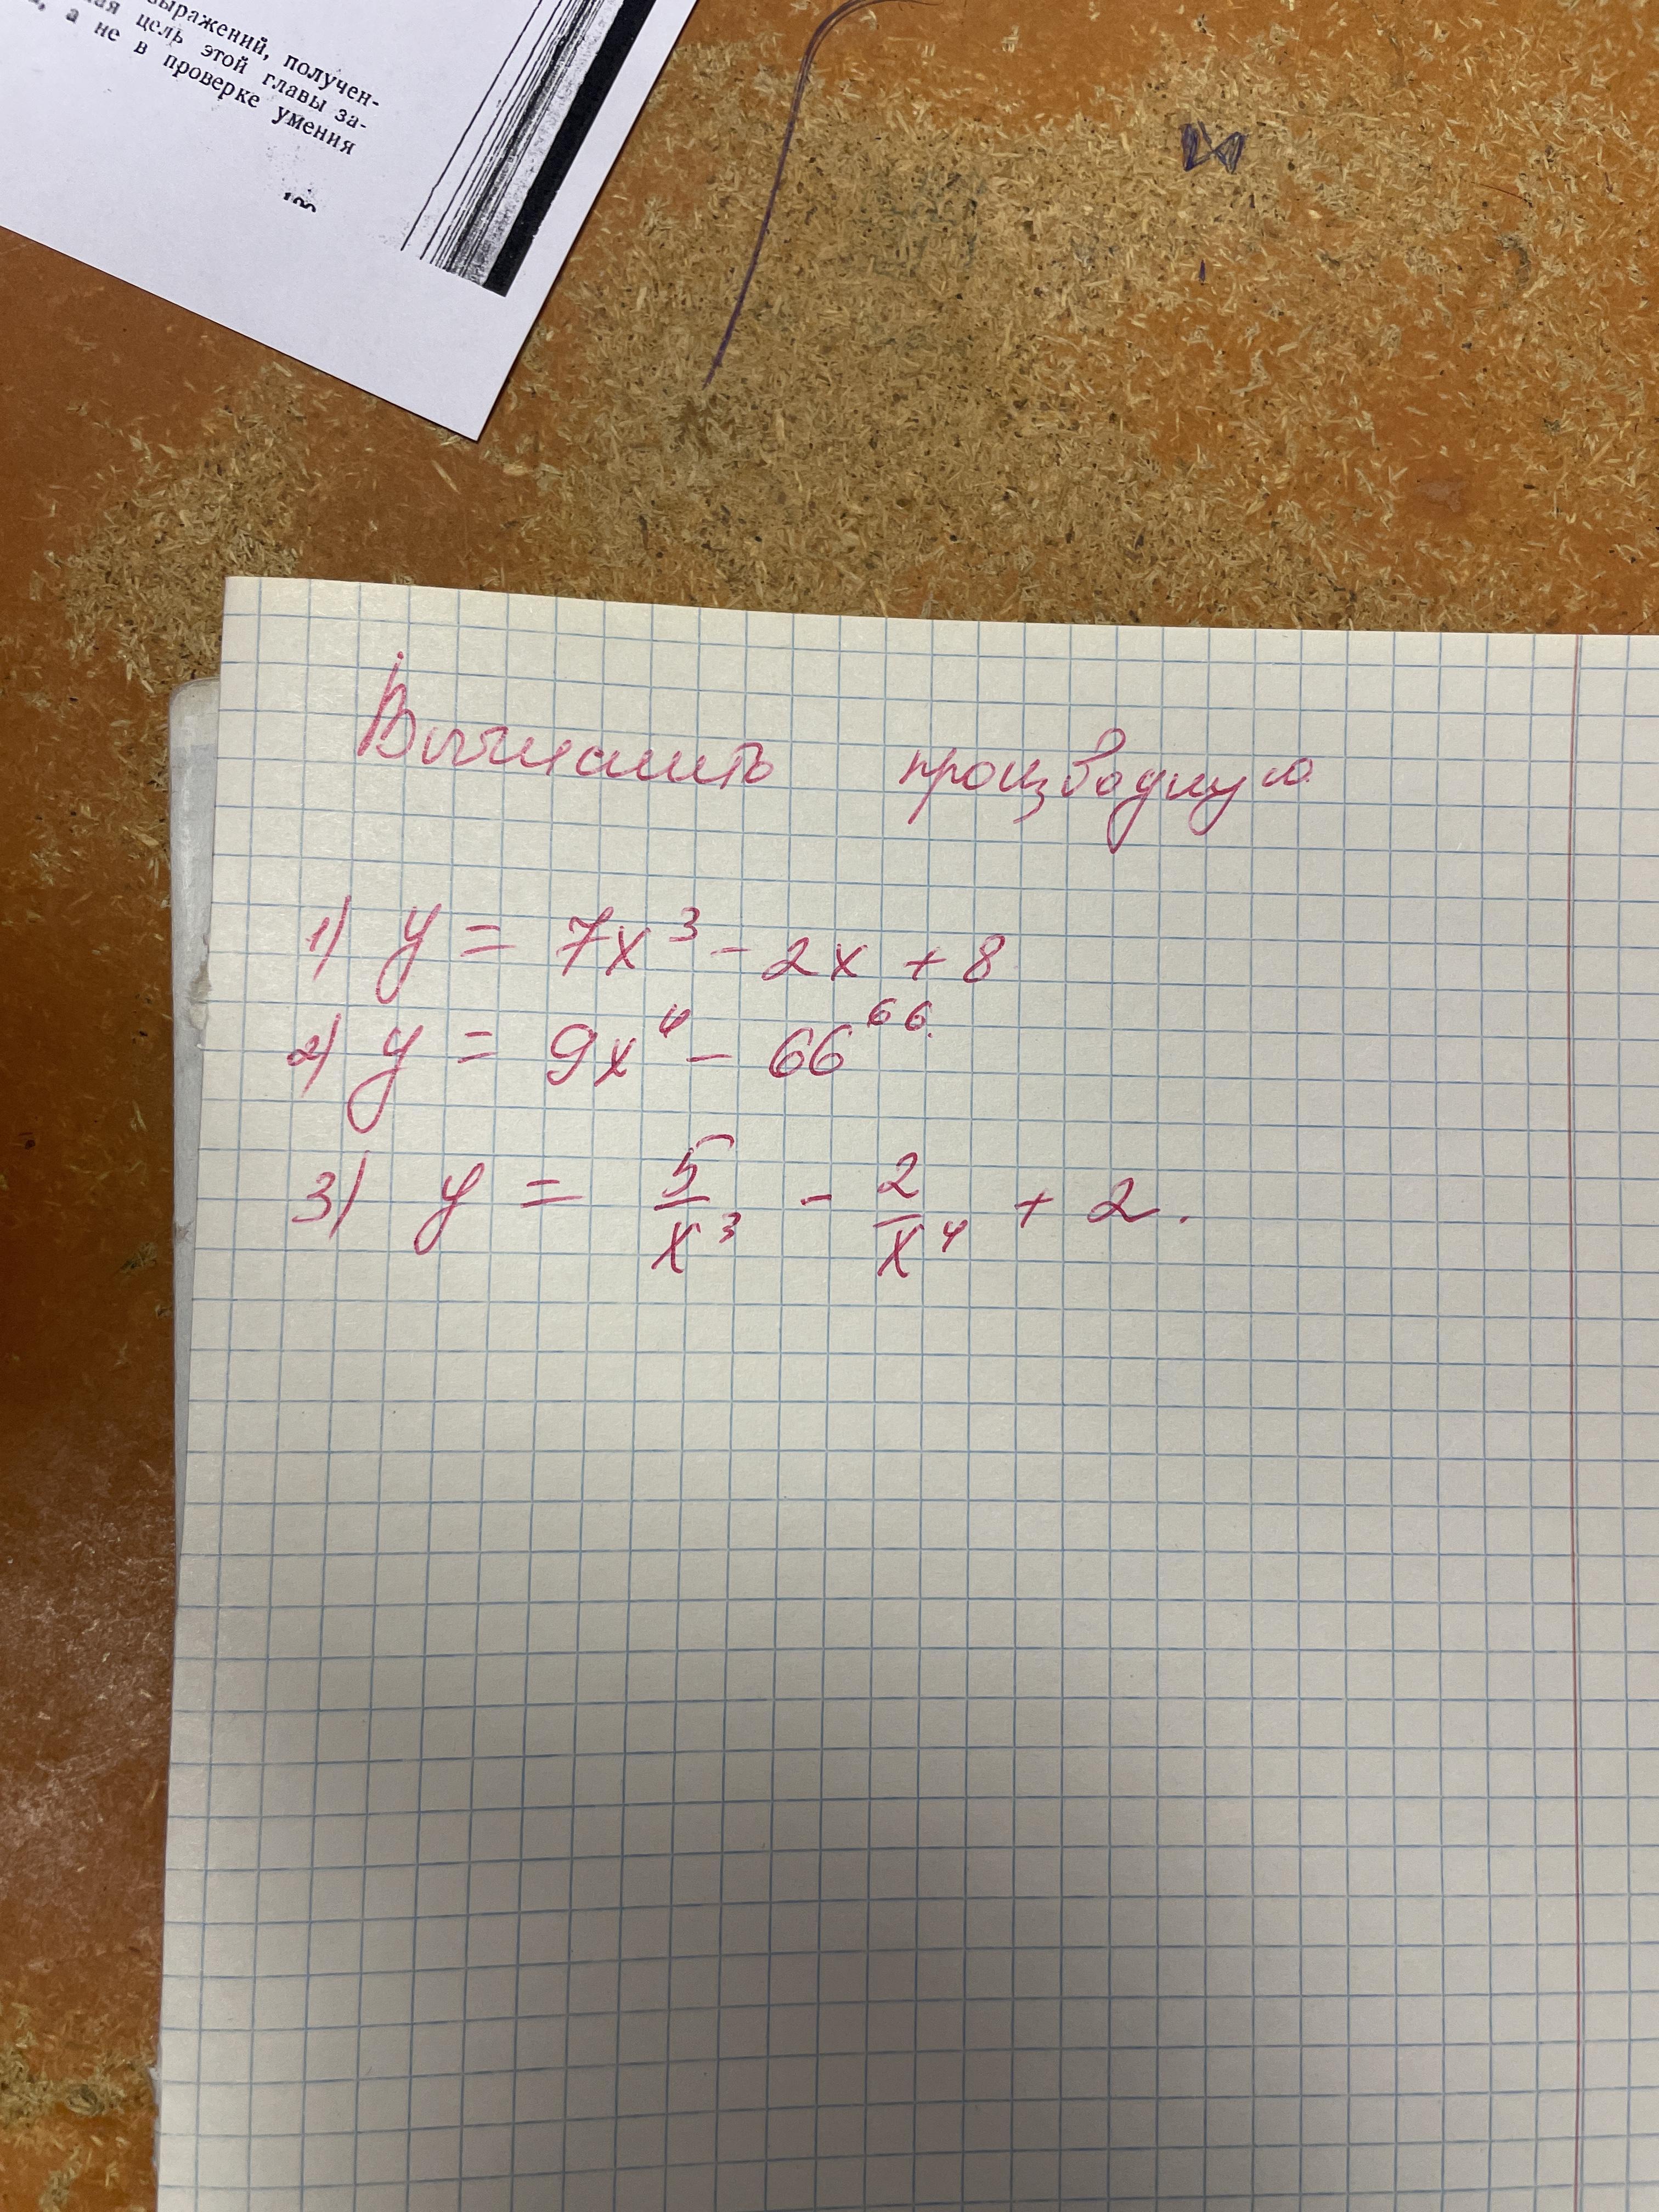 выражений, получен-
ная цель этой главы за-
, а не в проверке умения
Вычислить производную
1) y = 7x³ - 2x + 8
2) y = 9x⁴ - 66⁶⁶.
3) y = 5/x³ - 2/x⁴ + 2.